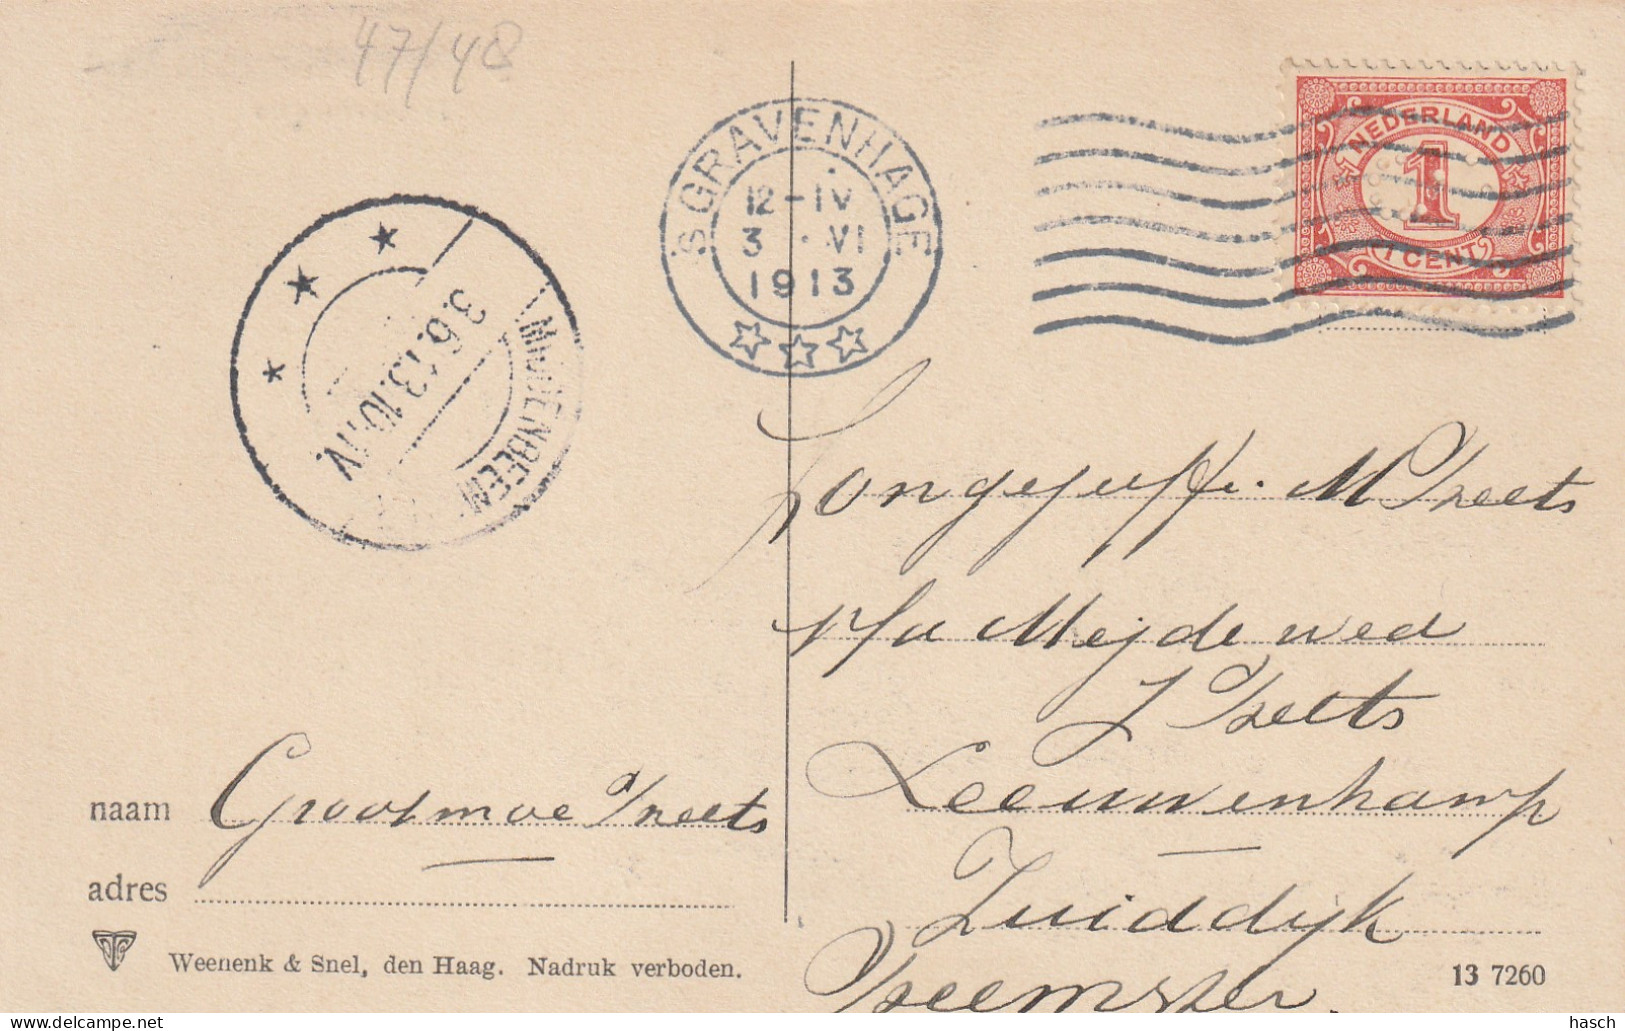 47/48
'SGRAVENHAGE
12-IV
3 . VI
1913
NEDERLAND
1
1 CENT
MIDDENBEEM
3.6.13.10-11V.
Jongejuffr. M Preets
p/a Mejde wed
J Preets
Leeuwenkamp
Zuiddijk
Beemster.
naam Grootmoe Preets
adres
Weenenk & Snel, den Haag. Nadruk verboden.
13 7260
hasch